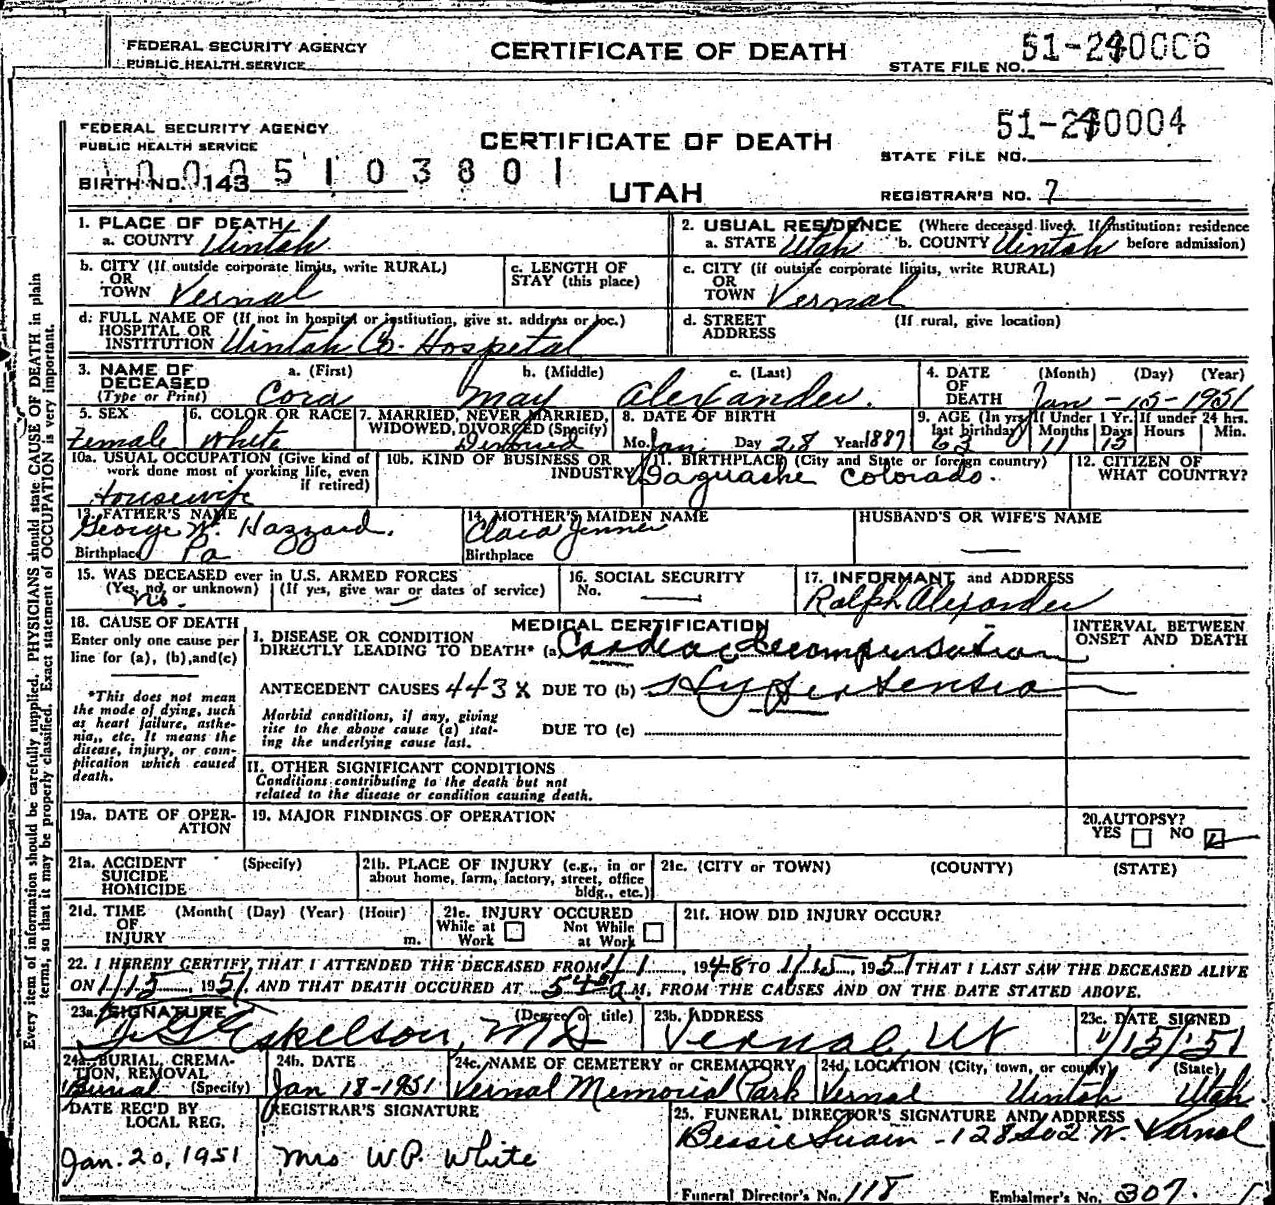 FEDERAL SECURITY AGENCY
PUBLIC HEALTH SERVICE
CERTIFICATE OF DEATH
STATE FILE NO.
FEDERAL SECURITY AGENCY
PUBLIC HEALTH SERVICE
CERTIFICATE OF DEATH
STATE FILE NO.
BIRTH NO. 143
UTAH
REGISTRAR'S NO. 7
1. PLACE OF DEATH
a. COUNTY Uintah
2. USUAL RESIDENCE (Where deceased lived. If institution: residence
a. STATE Utah b. COUNTY Uintah before admission)
b. CITY (If outside corporate limits, write RURAL)
OR
TOWN Vernal
c. LENGTH OF
STAY (this place)
c. CITY (if outside corporate limits, write RURAL)
OR
TOWN Vernal
d. FULL NAME OF (If not in hospital or institution, give st. address or loc.)
HOSPITAL OR
INSTITUTION Uintah Co. Hospital
d. STREET (If rural, give location)
ADDRESS
3. NAME OF a. (First) b. (Middle) c. (Last)
DECEASED
(Type or Print) Cora May Alexander.
4. DATE (Month) (Day) (Year)
OF
DEATH Jan - 15 - 1951
5. SEX
Female
6. COLOR OR RACE
White
7. MARRIED, NEVER MARRIED,
WIDOWED, DIVORCED (Specify)
Divorced
8. DATE OF BIRTH
Mo. Jan. Day 28 Year 1887
9. AGE (In yrs If Under 1 Yr. If under 24 hrs.
last birthday) Months Days Hours Min.
63 11
10a. USUAL OCCUPATION (Give kind of
work done most of working life, even
if retired)
Housewife
10b. KIND OF BUSINESS OR
INDUSTRY
11. BIRTHPLACE (City and State or foreign country)
Saguache Colorado.
12. CITIZEN OF
WHAT COUNTRY?
13. FATHER'S NAME
George W. Hazzard.
Birthplace Pa
14. MOTHER'S MAIDEN NAME
Clara
Birthplace
HUSBAND'S OR WIFE'S NAME
—
15. WAS DECEASED ever in U.S. ARMED FORCES
(Yes, no, or unknown) (If yes, give war or dates of service)
no. —
16. SOCIAL SECURITY
No. —
17. INFORMANT and ADDRESS
Ralph Alexander
18. CAUSE OF DEATH
Enter only one cause per
line for (a), (b), and (c)
*This does not mean
the mode of dying, such
as heart failure, asthe-
nia, etc. It means the
disease, injury, or com-
plication which caused
death.
MEDICAL CERTIFICATION
I. DISEASE OR CONDITION
DIRECTLY LEADING TO DEATH* (a) Cardiac Decompensation
ANTECEDENT CAUSES 443X DUE TO (b) Hypertension
Morbid conditions, if any, giving
rise to the above cause (a) stat-
ing the underlying cause last.
DUE TO (c)
INTERVAL BETWEEN
ONSET AND DEATH
II. OTHER SIGNIFICANT CONDITIONS
Conditions contributing to the death but not
related to the disease or condition causing death.
19a. DATE OF OPER-
ATION
19. MAJOR FINDINGS OF OPERATION
20. AUTOPSY?
YES NO
21a. ACCIDENT (Specify)
SUICIDE
HOMICIDE
21b. PLACE OF INJURY (e.g., in or
about home, farm, factory, street, office
bldg., etc.)
21c. (CITY or TOWN) (COUNTY) (STATE)
21d. TIME (Month( (Day) (Year) (Hour)
OF
INJURY m.
21e. INJURY OCCURED
While at Not While
Work at Work
21f. HOW DID INJURY OCCUR?
22. I HEREBY CERTIFY, THAT I ATTENDED THE DECEASED FROM 1/1, 1948 TO 1/15, 1951 THAT I LAST SAW THE DECEASED ALIVE
ON 1/15, 1951, AND THAT DEATH OCCURED AT A M, FROM THE CAUSES AND ON THE DATE STATED ABOVE.
23a. SIGNATURE (Degree or title)
Eskelson, MD
23b. ADDRESS
Vernal, Ut
23c. DATE SIGNED
1/15/51
24a. BURIAL, CREMA-
TION, REMOVAL
Burial (Specify)
24b. DATE
Jan 18-1951
24c. NAME OF CEMETERY or CREMATORY
Vernal Memorial Park
24d. LOCATION (City, town, or county) (State)
Vernal Uintah Utah
DATE REC'D BY
LOCAL REG.
Jan. 20, 1951
REGISTRAR'S SIGNATURE
Mrs W.P. White
25. FUNERAL DIRECTOR'S SIGNATURE AND ADDRESS
Bessie Swain - 128 So 2 W. Vernal
Funeral Director's No. 118 Embalmer's No. 307.
Every item of information should be carefully supplied. PHYSICIANS should state CAUSE OF DEATH in plain
terms, so that it may be properly classified. Exact statement of OCCUPATION is very important.